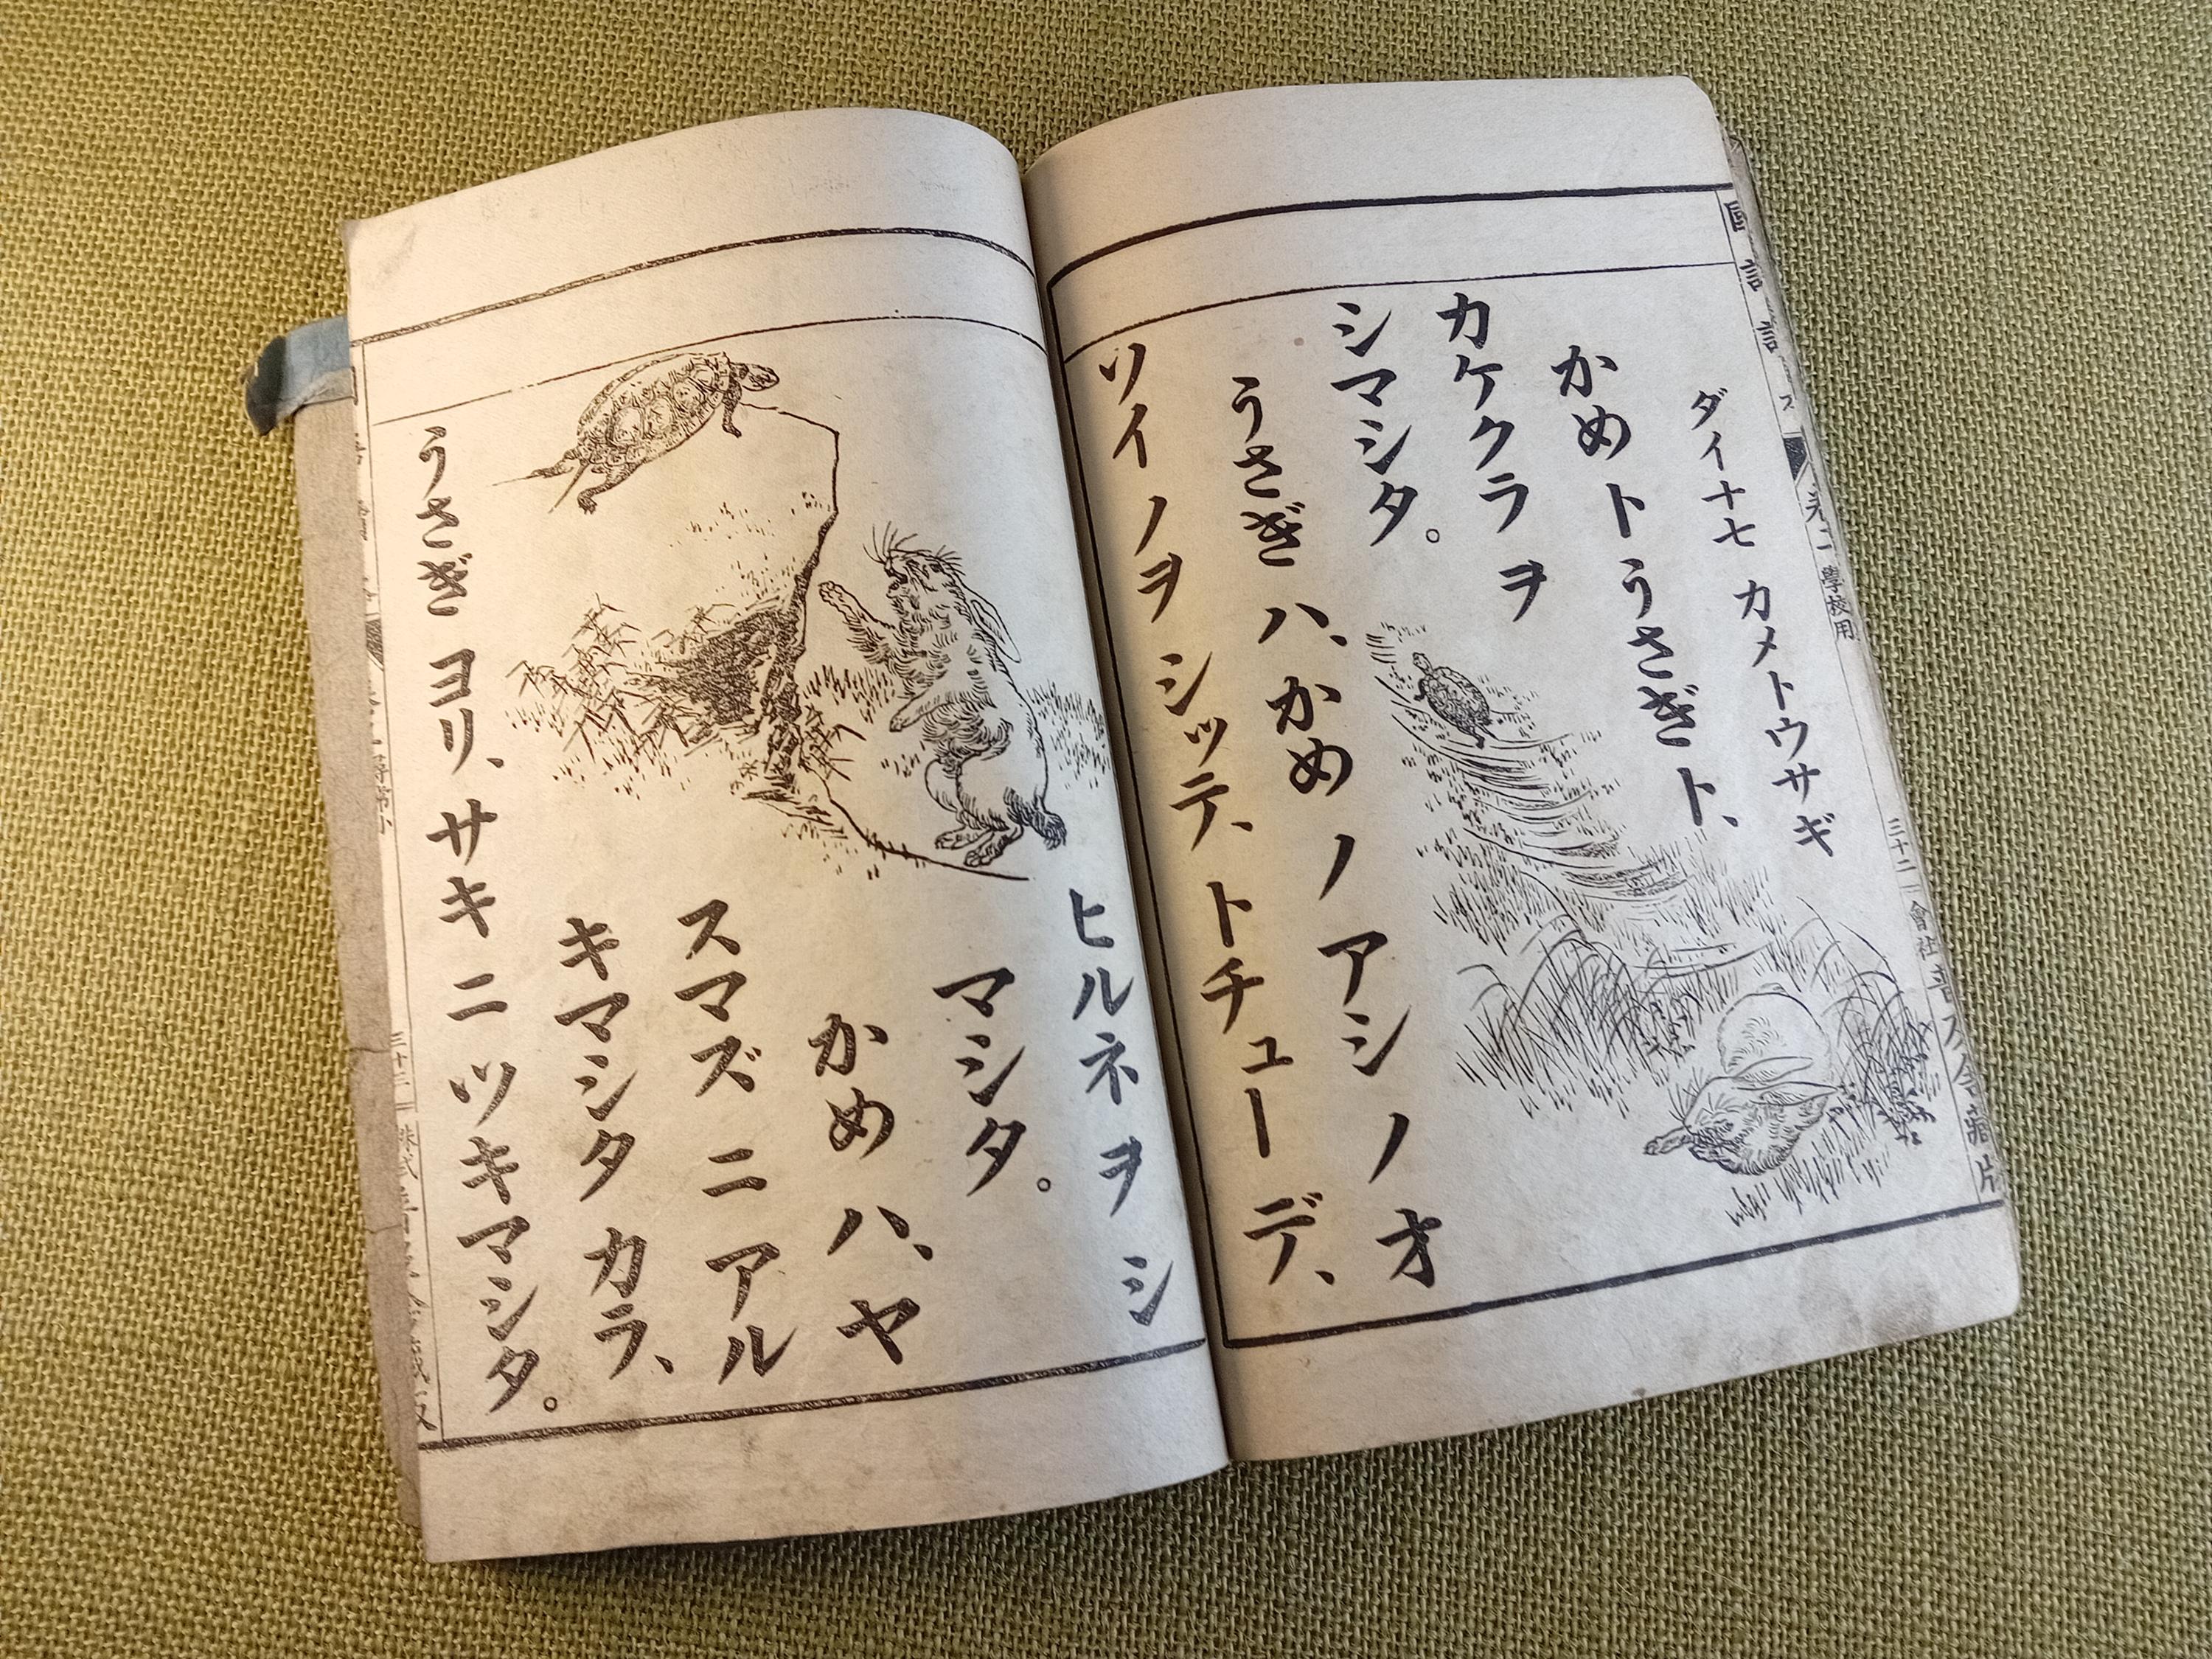 ダイ十七 カメトウサギ
かめ ト うさぎ ト、
カケクラ ヲ
シマシタ。
うさぎ ハ、かめ ノ アシ ノ オ
ソイ ノヲ シッテ、トチューデ、
ヒルネ ヲ シ
マシタ。
かめ ハ、ヤ
スマズ ニ アル
キマシタ カラ、
うさぎ ヨリ、サキ ニ ツキマシタ。
學校用
三十二
會社
三十三